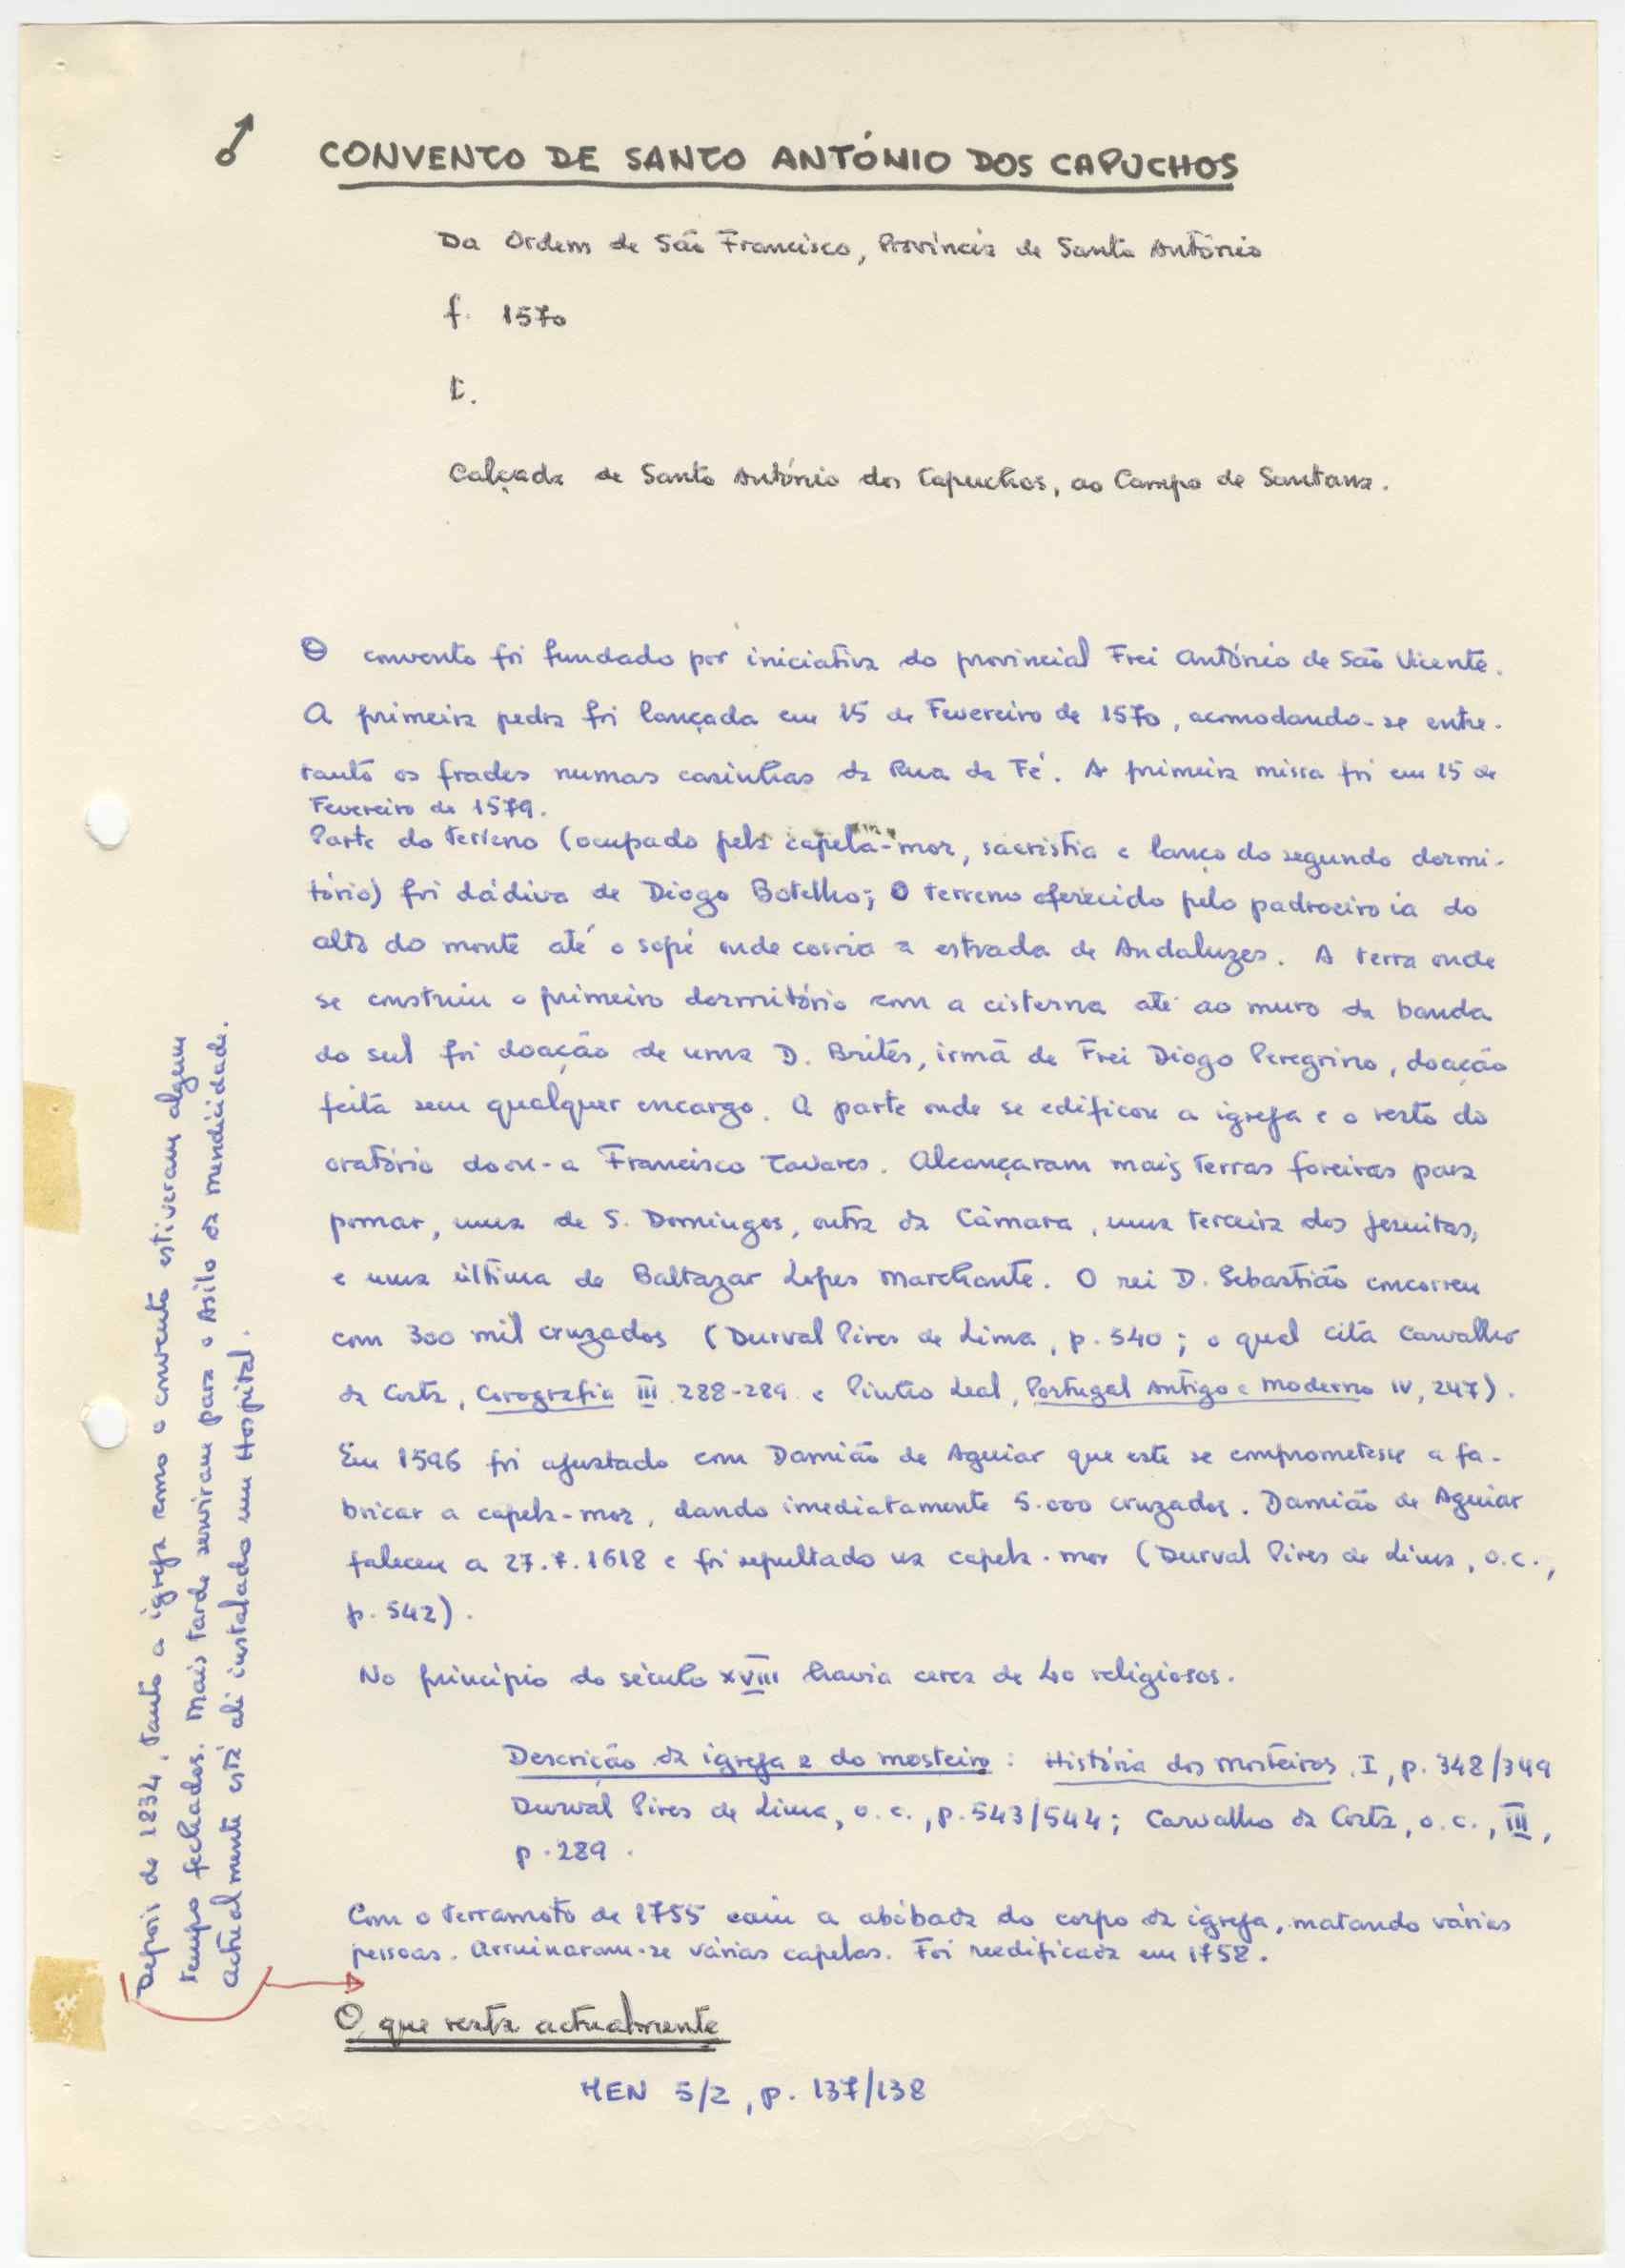 CONVENTO DE SANTO ANTÓNIO DOS CAPUCHOS
Da Ordem de São Francisco, Província de Santo António
f. 1570
t.
Calçada de Santo António dos Capuchos, ao Campo de Santana.
O convento foi fundado por iniciativa do provincial Frei António de São Vicente.
A primeira pedra foi lançada em 15 de Fevereiro de 1570, acomodando-se entre-
tanto os frades numas casinhas da Rua da Fé. A primeira missa foi em 15 de
Fevereiro de 1579.
Parte do terreno (ocupado pela capela-mor, sacristia e lanço do segundo dormi-
tório) foi dádiva de Diogo Botelho; O terreno oferecido pelo padroeiro ia do
alto do monte até o sopé onde corria a estrada de Andaluzes. A terra onde
se construiu o primeiro dormitório com a cisterna até ao muro da banda
do sul foi doação de uma D. Brites, irmã de Frei Diogo Peregrino, doação
feita sem qualquer encargo. A parte onde se edificou a igreja e o resto do
oratório doou-a Francisco Tavares. Alcançaram mais terras foreiras para
pomar, uma de S. Domingos, outra da Câmara, uma terceira dos jesuitas,
e uma última de Baltazar Lopes Marchante. O rei D. Sebastião concorreu
com 300 mil cruzados (Durval Pires de Lima, p. 540; o qual cita Carvalho
da Costa, Corografia III 288-289 e Pinho Leal, Portugal Antigo e Moderno IV, 247).
Em 1596 foi ajustado com Damião de Aguiar que este se comprometesse a fa-
bricar a capela-mor, dando imediatamente 5.000 cruzados. Damião de Aguiar
faleceu a 27.7.1618 e foi sepultado na capela-mor (Durval Pires de Lima, o.c.,
p. 542).
No princípio do século XVIII havia cerca de 40 religiosos.
Descrição da igreja e do mosteiro: História dos Mosteiros, I, p. 348/349
Durval Pires de Lima, o.c., p. 543/544; Carvalho da Costa, o.c., III,
p. 289.
Com o terramoto de 1755 caiu a abóbada do corpo da igreja, matando várias
pessoas. Arruinaram-se várias capelas. Foi reedificada em 1758.
Depois de 1834, tanto a igreja como o convento estiveram algum
tempo fechados. Mais tarde serviram para o Asilo da mendicidade.
Actualmente está ali instalado um Hospital.
O que resta actualmente
MEN 5/2, p. 137/138